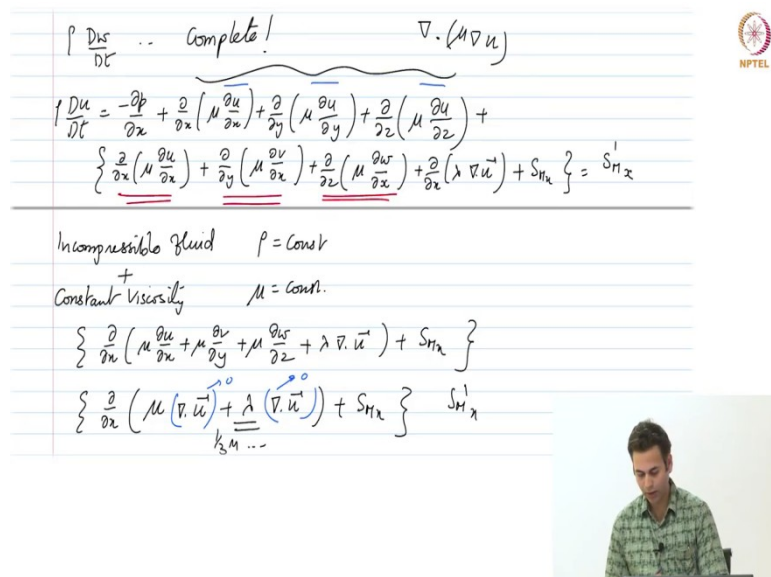 ρ Dw/Dt .. Complete! ∇.(μ∇u)
NPTEL
ρ Du/Dt = -∂p/∂x + ∂/∂x (μ ∂u/∂x) + ∂/∂y (μ ∂u/∂y) + ∂/∂z (μ ∂u/∂z) +
{ ∂/∂x (μ ∂u/∂x) + ∂/∂y (μ ∂v/∂x) + ∂/∂z (μ ∂w/∂x) + ∂/∂x (λ ∇.u⃗) + S_Mx } = S'_Mx
Incompressible fluid ρ = const
+
Constant Viscosity μ = const.
{ ∂/∂x (μ ∂u/∂x + μ ∂v/∂y + μ ∂w/∂z + λ ∇.u⃗) + S_Mx }
{ ∂/∂x (μ (∇.u⃗)→0 + λ (∇.u⃗)→0) + S_Mx } S'_Mx
1/3 μ ...